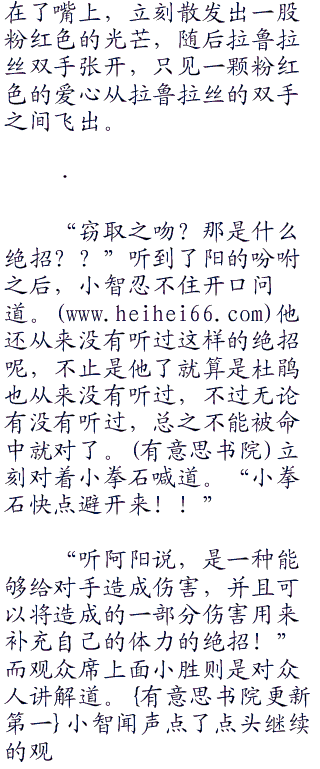 在了嘴上，立刻散发出一股
粉红色的光芒，随后拉鲁拉
丝双手张开，只见一颗粉红
色的爱心从拉鲁拉丝的双手
之间飞出。
.
“窃取之吻？那是什么
绝招？？”听到了阳的吩咐
之后，小智忍不住开口问
道。(www.heihei66.com)他
还从来没有听过这样的绝招
呢，不止是他了就算是杜鹃
也从来没有听过，不过无论
有没有听过，总之不能被命
中就对了。(有意思书院)立
刻对着小拳石喊道。“小拳
石快点避开来！！”
“听阿阳说，是一种能
够给对手造成伤害，并且可
以将造成的一部分伤害用来
补充自己的体力的绝招！”
而观众席上面小胜则是对众
人讲解道。{有意思书院更新
第一}小智闻声点了点头继续
的观